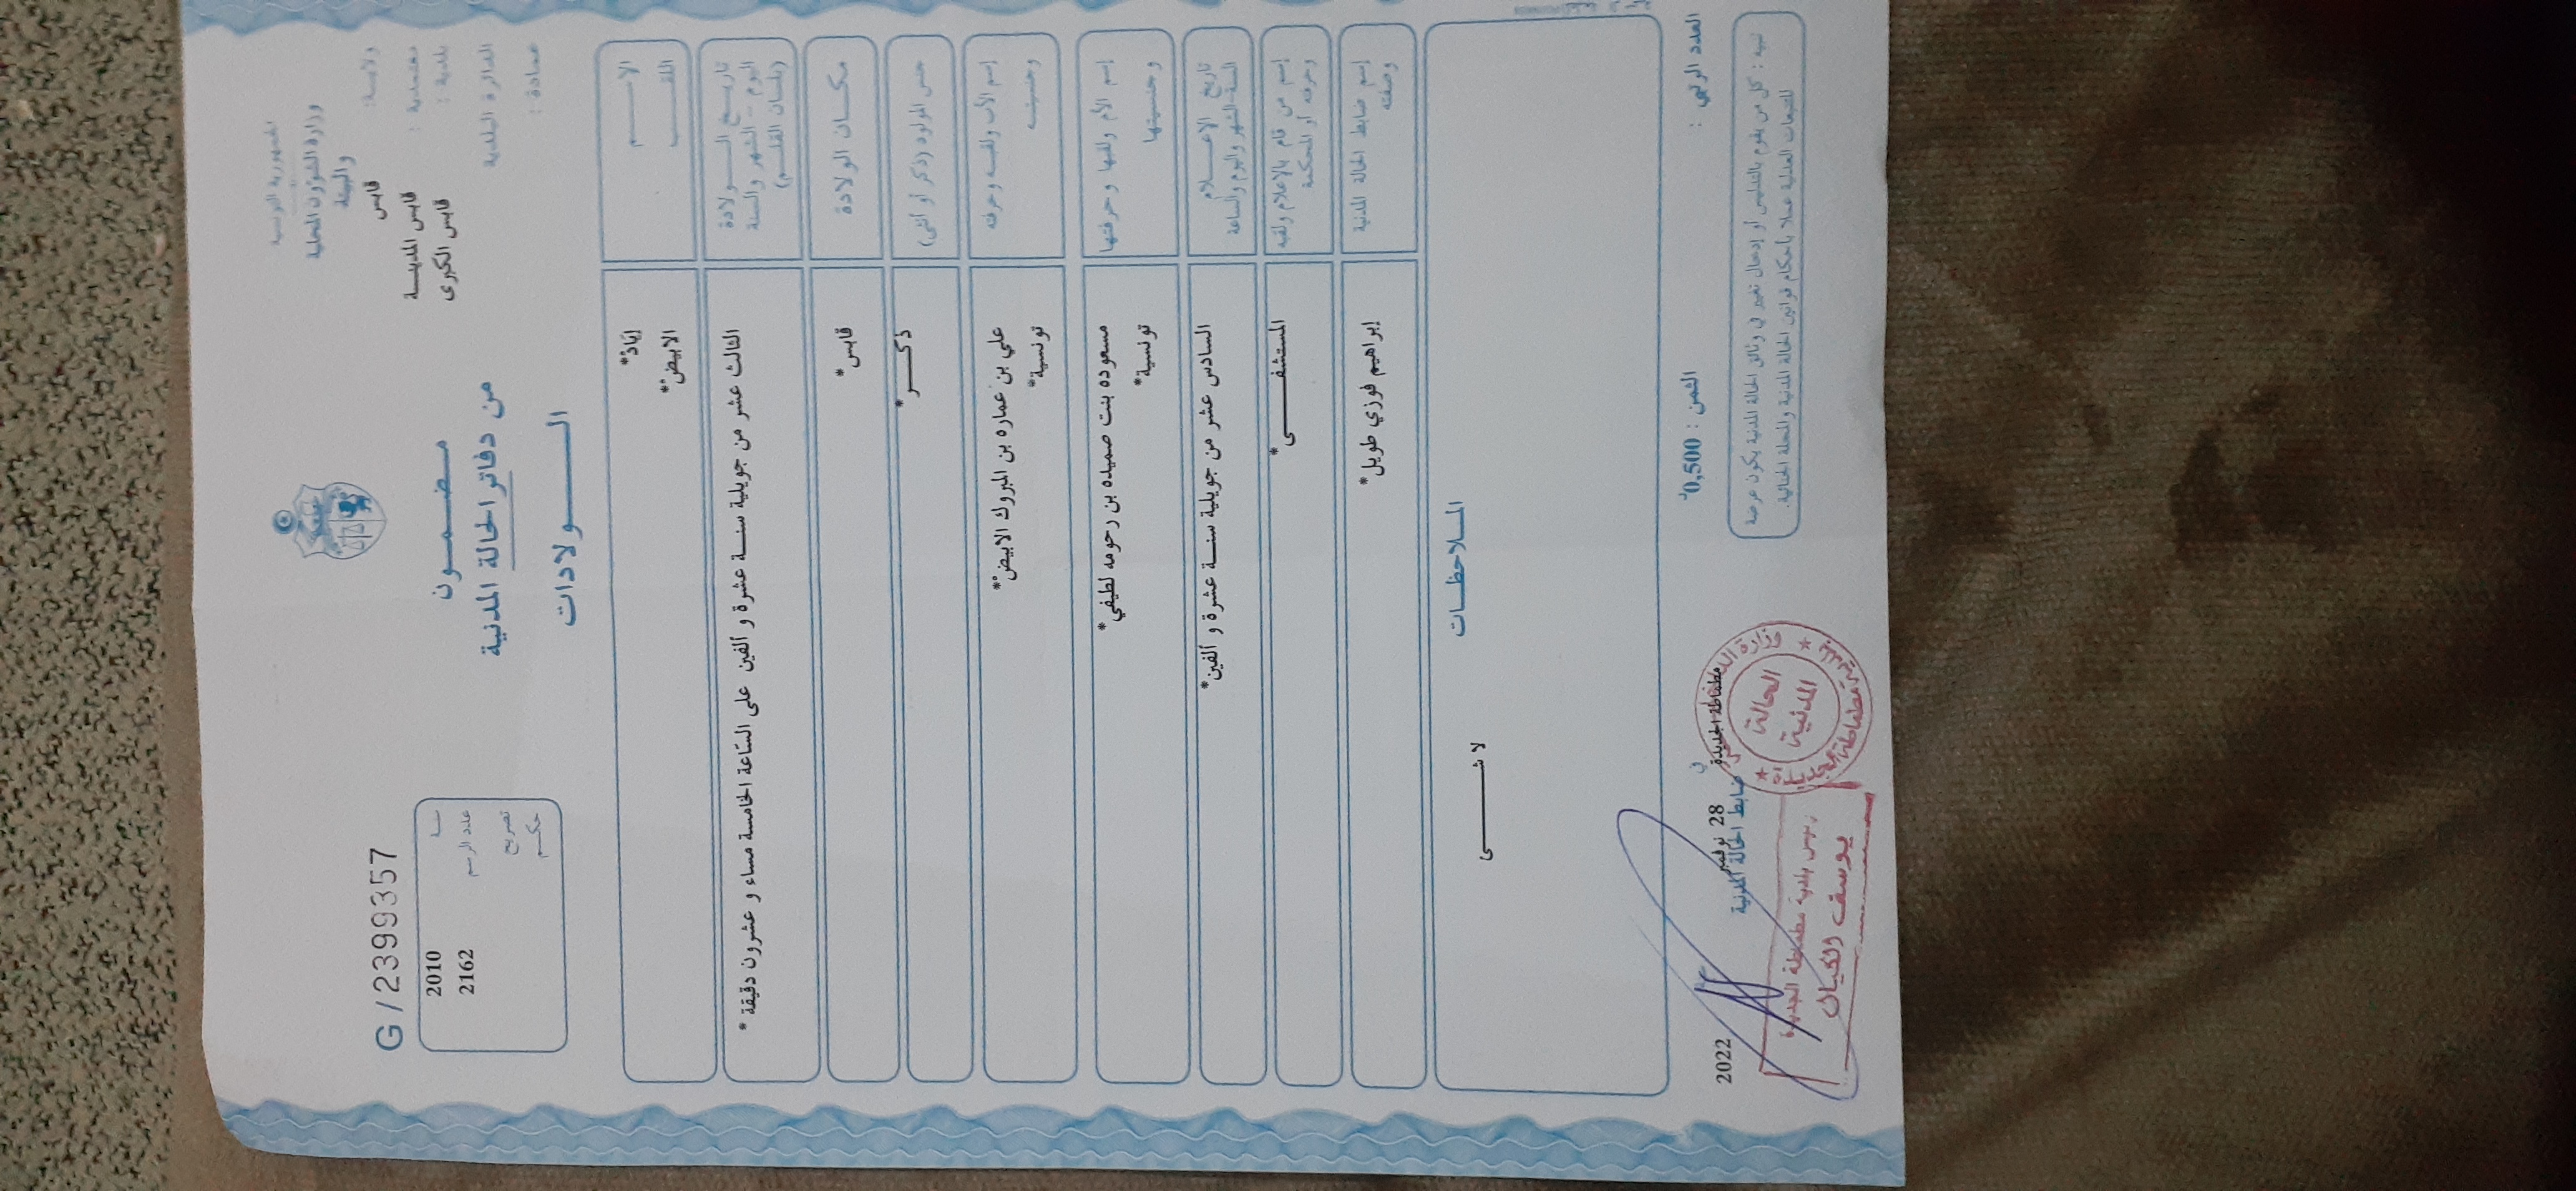 الجمهورية التونسية
وزارة الشؤون المحلية
والبيئة
ولايـــة: قابس
معتمدية : قابس المدينــة
بلدية : قابس الكبرى
الدائرة البلدية
عمادة :
G/2399357
سنــة 2010
عدد الرسم 2162
تصريح
حكـم
مـضـمــون
من دفاتر الحالة المدنية
الـــولادات
الاســـم إياد*
اللقـــب الابيض**
تاريــخ الــولادة
اليوم - الشهر والسنة
(بلسان القلــم)
الثالث عشر من جويلية سنــة عشرة و ألفين على الساعة الخامسة مساء و عشرون دقيقة *
مكــان الولادة قابس*
جنس المولود (ذكر أو أنثى) ذكـــر*
إسم الأب ولقبـه وحرفته علي بن عماره بن المبروك الابيض**
وجنسيتــه تونسية*
إسم الأم ولقبها وحرفتها مسعوده بنت صميده بن رحومه لطيفي*
وجنسيتها تونسية*
تاريخ الإعــلام
السنة-الشهر واليوم والساعة
السادس عشر من جويلية سنــة عشرة و ألفين*
إسم من قام بالإعلام ولقبه
وحرفته أو المحكمة
المستشفـــى*
إسم ضابط الحالة المدنية إبراهيم فوزي طويل*
وصفته
المـلاحظــات
لا شـــــى
العدد الرتبي :
الثمن : 0,500د
مطماطة الجديدة في 28 نوفمبر 2022
ضابط الحالة المدنية
تنبيه : كل من يقوم بالتدليس أو إدخال تغيير في وثائق الحالة المدنية يكون عرضة
للتتبعات العدلية عملا بأحكام قوانين الحالة المدنية والمجلة الجنائية.
الحالة
المدنية
رئيس بلدية مطماطة الجديدة
يوسف الكيال